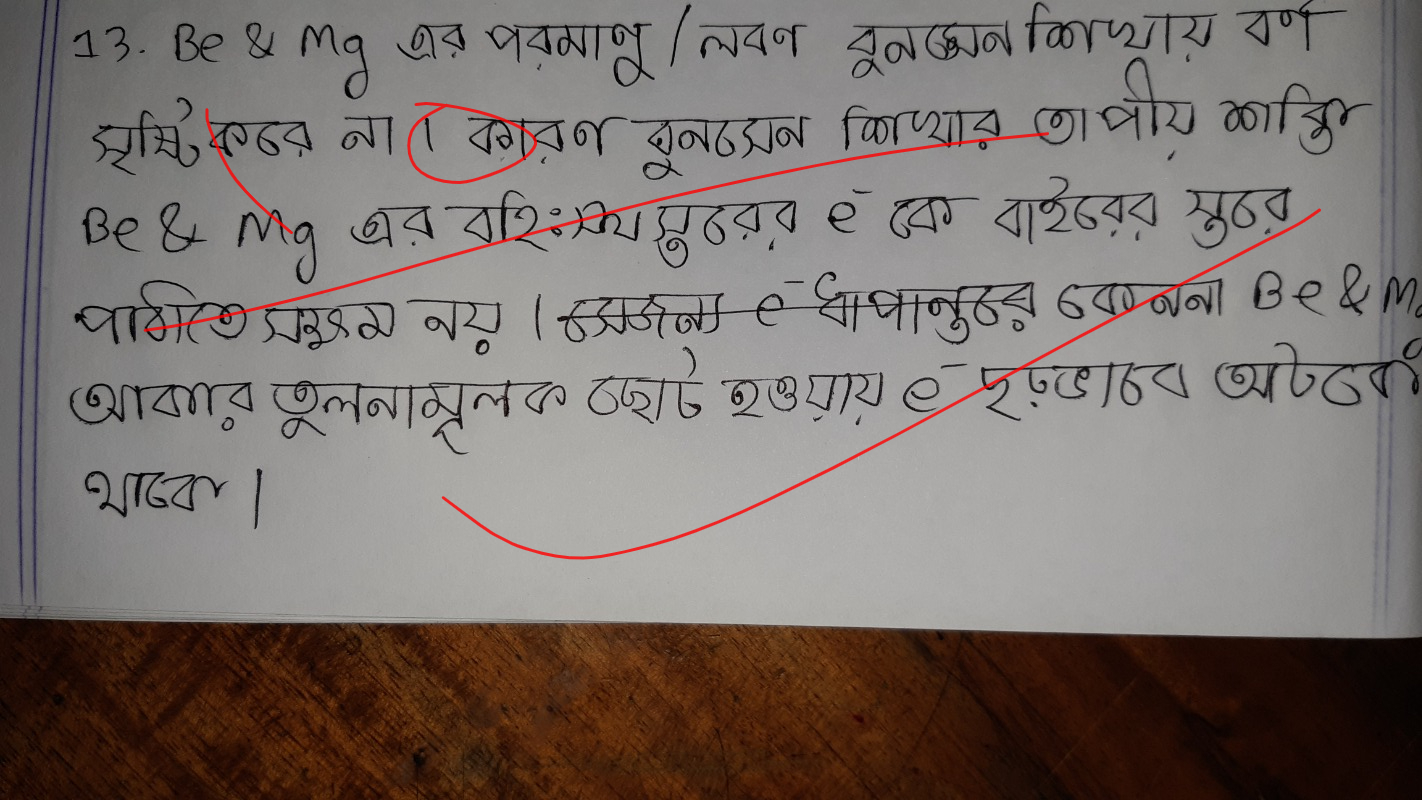 13. Be & Mg এর পরমাণু / লবণ বুনসেন শিখায় বর্ণ
সৃষ্টি করে না। কারণ বুনসেন শিখার তাপীয় শক্তি
Be & Mg এর বহিঃস্থ স্তরের e⁻ কে বাইরের স্তরে
পাঠাতে সক্ষম নয়। সেজন্য e⁻ ধাপান্তরে কেননা Be & Mg
আকার তুলনামূলক ছোট হওয়ায় e⁻ দৃঢ়ভাবে আটকে
থাকে।